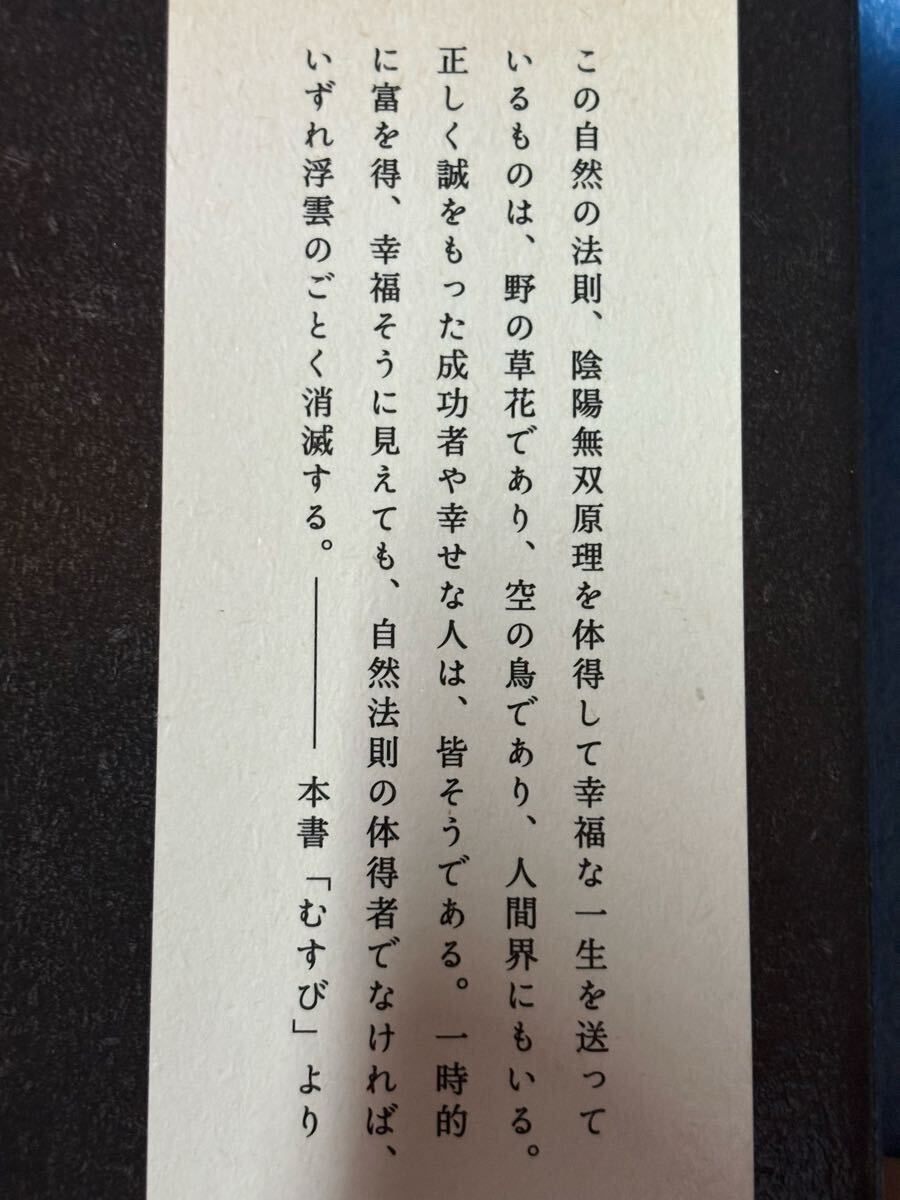 この自然の法則、陰陽無双原理を体得して幸福な一生を送って
いるものは、野の草花であり、空の鳥であり、人間界にもいる。
正しく誠をもった成功者や幸せな人は、皆そうである。一時的
に富を得、幸福そうに見えても、自然法則の体得者でなければ、
いずれ浮雲のごとく消滅する。――― 本書「むすび」より